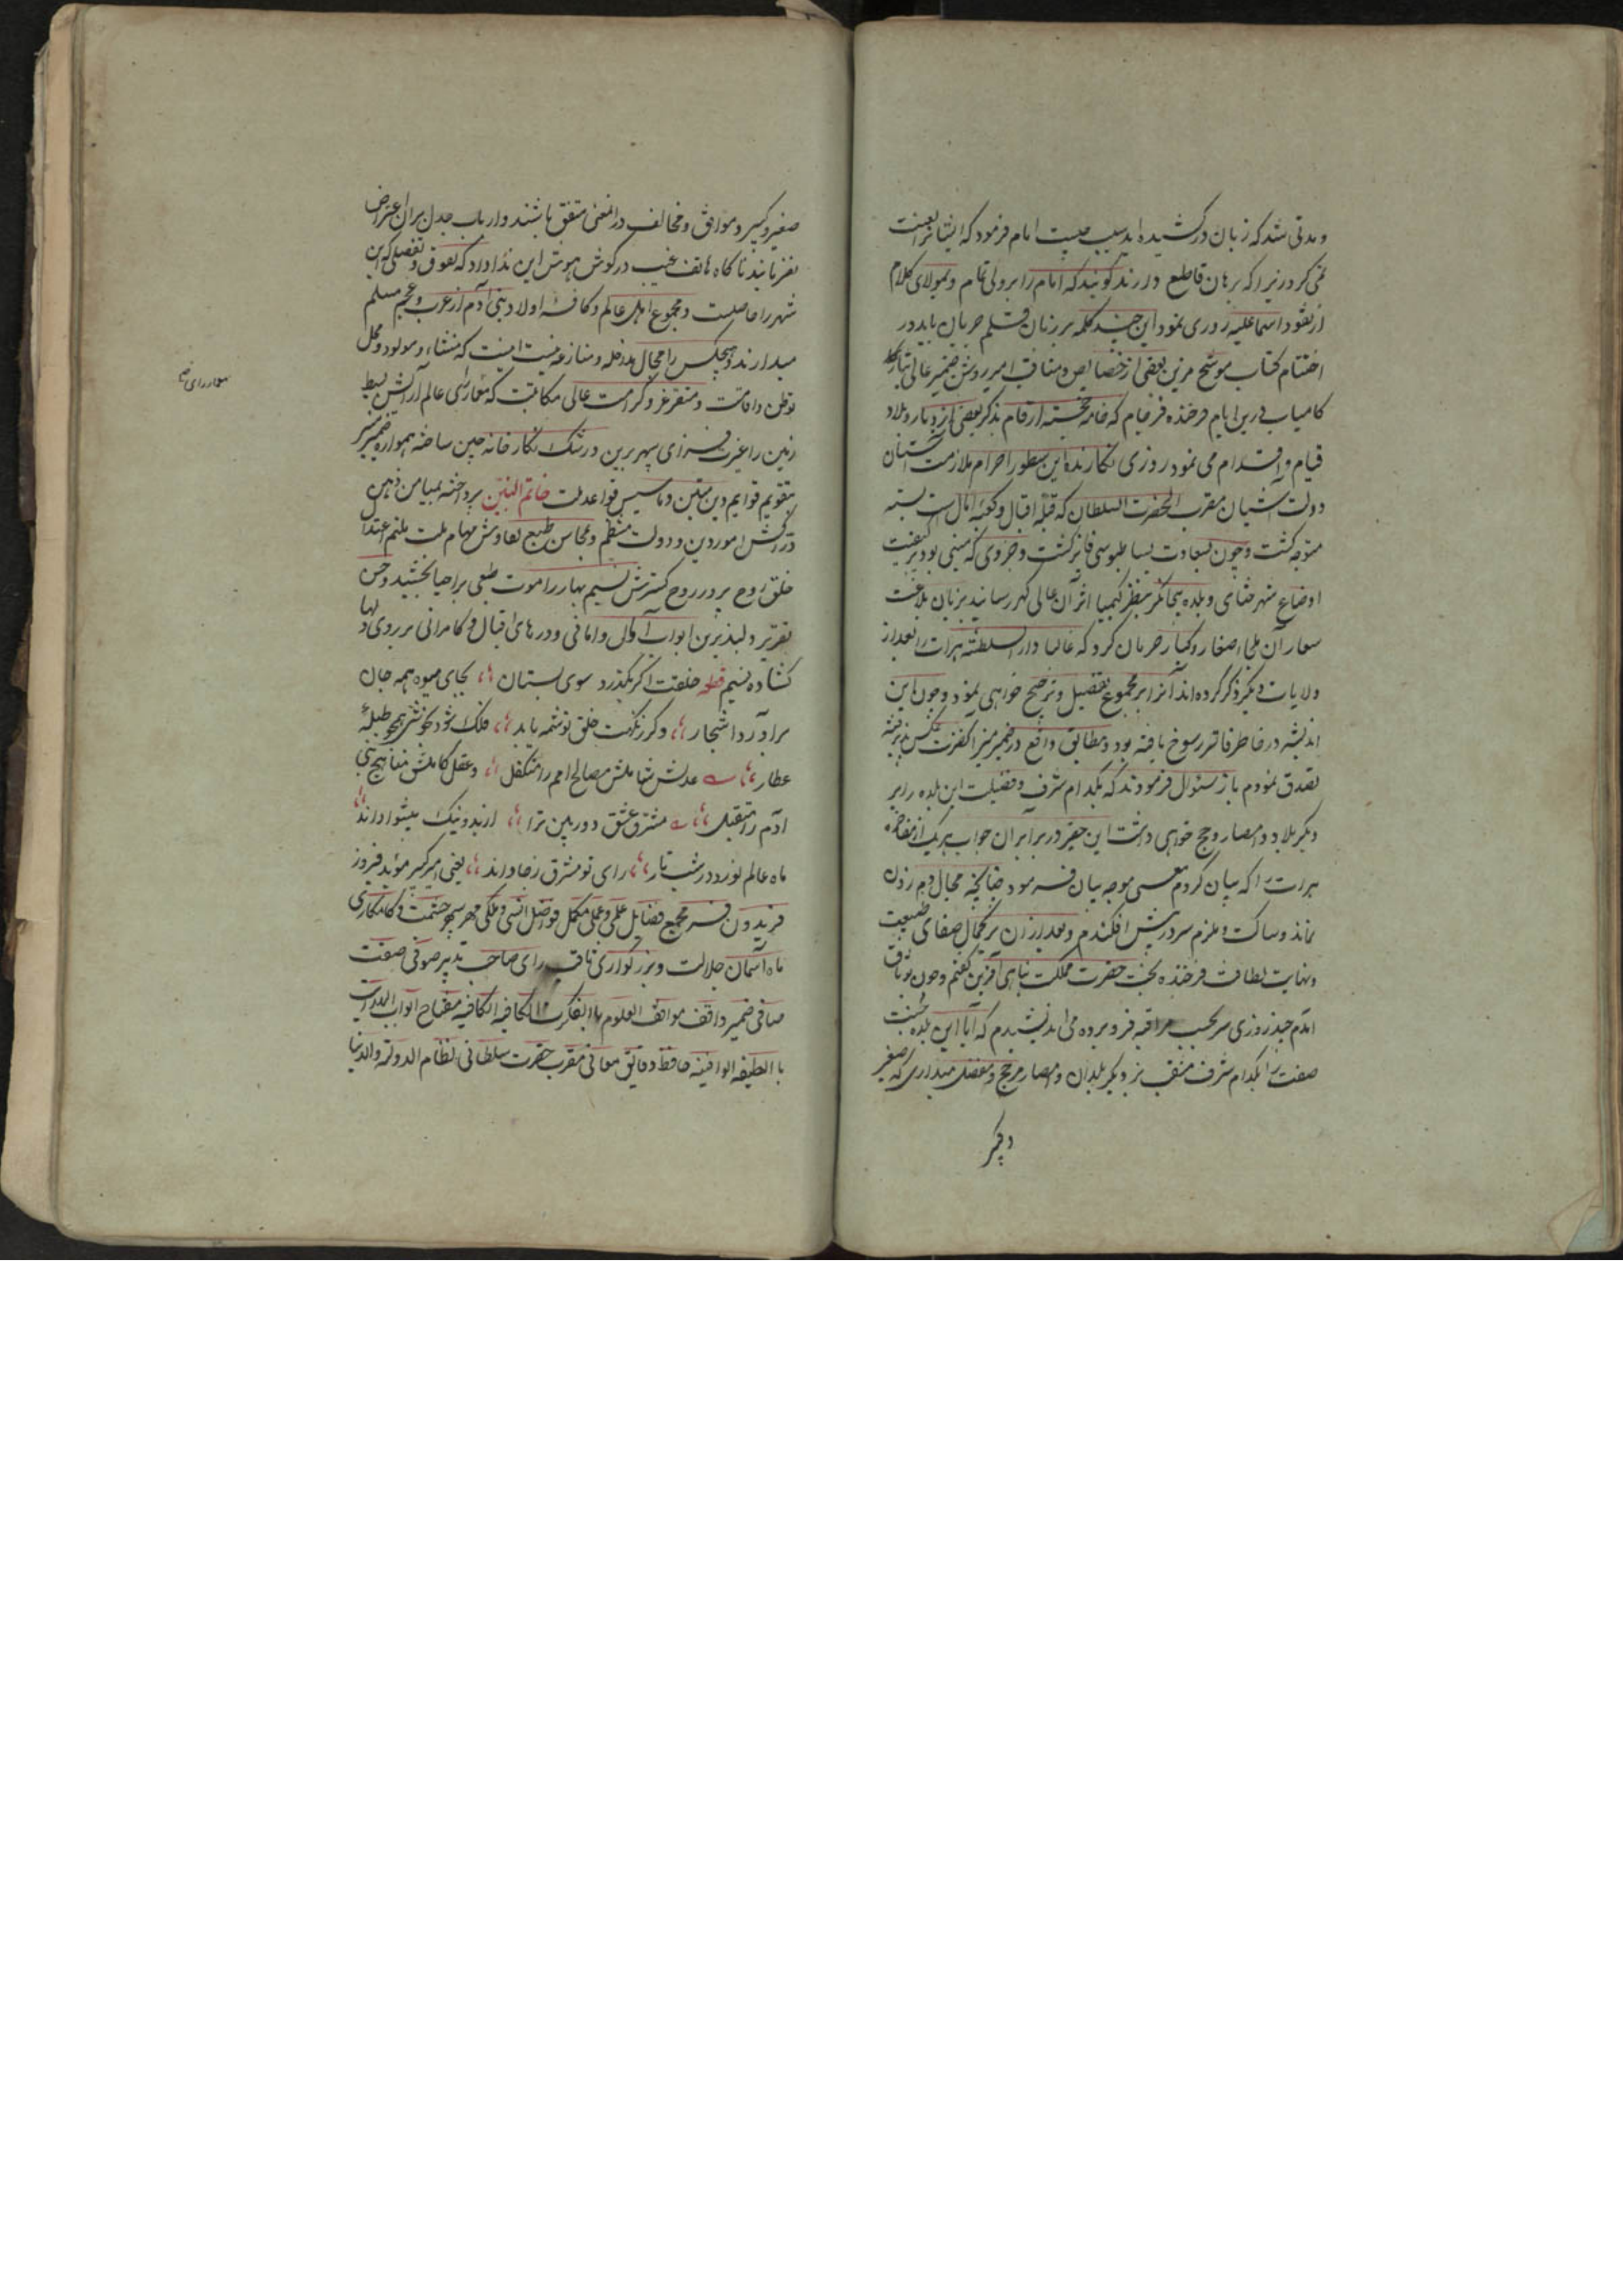 و مدتی شد که زبان درکشیده اند سبب چیست امام فرمود که ایشانرا لعنت
نمی کرد زیرا که برهان قاطع دارند گویند که امام را بر ولی تمام و بمولای کلام
از نقود اسماعلیه روزی نمود این چند کلمه بر زبان قلم جریان یابد در
اختتام کتاب موشح مزین بعضی از خصایص و مناقب امیر روشن ضمیر عالی تبار
کامیاب درین ایام فرخنده فرجام که خامه خجسته ارقام بذکر بعضی از دیار و بلاد
قیام و اقدام می نمود روزی نگارنده این سطور احرام ملازمت آستان
دولت آشیان مقرب الحضرت السلطان که قبله اقبال و کعبه آمال است بسته
متوجه گشت و چون بسعادت بساط بوسی فایز گشت و جزوی که مبنی بود بر کیفیت
اوضاع شهر ختای و بلده بیجانگر بنظر کیمیا اثر آن عالی گهر رسانید بزبان بلاغت
آن ملجاء صغار و کبار جریان کرد که غالبا دار السلطنه هرات را بعد از
ولایات دیگر ذکر کرده اند آنرا بر مجموع تفضیل و ترجیح خواهی نمود و چون این
اندیشه در خاطر فاتر رسوخ یافته بود و مطابق واقع در ضمیر منیر آنحضرت عکس پذیرفته
تصدق نمودم باز سئوال فرمودند که بکدام شرف و فضیلت این بلده را بر
دیگر بلاد و امصار رجح خواهی داشت این حقیر در برابر آن جواب هر یک از مفاخر
هرات را که بیان کردم بیان فرمود چنانچه مجال دم زدن
نماند و ساکت و ملزم سر در پیش افکندم و بعد از آن بر کمال صفای طبیعت
و نهایت لطافت فرخنده بخت حضرت مملکت پناهی آفرین گفتم و چون بوثاق
آمدم چند روزی سر بجیب مراقبه فرو برده می اندیشیدم که آیا این بلده جنت
صفت را بکدام شرف منقبت بر دیگر بلدان و امصار مرجح و مفضل میداری که صغیر
صغیر و کبیر و موافق و مخالف در انمعنی متفق باشند و ارباب جدل بران اعتراض
نفرمایند ناگاه هاتف غیب در گوش هوش این ندا داد که تفوق و تفضلی که این
شهر را حاصلست و مجموع اهل عالم و کافه اولاد بنی آدم از عرب و عجم مسلم
میدارند و هیچکس را مجال مدخله و منازعه نیست اینست که منشاء و مولود و محل
توطن و اقامت و مستقر عز و کرامت عالی مکانیست که معمار رای عالم آرایش بسیط
زمین را غیرت فزای سپهر برین و رشک نگارخانه چین ساخته همواره ضمیر منیر
بتقویم قوایم دین متین و تاسیس قواعد ملت خاتم النبیین پرداخته بمیامن ذهن
دراکش امور دین و دولت منتظم و محاسن طبع نقادش مهام ملت ملتئم اعتدال
خلق روح پرور روح گسترش نسیم بهار را موت طبعی براحیا بخشید و حسن
تقریر دلپذیرش ابواب آمال و امانی و درهای اقبال و کامرانی بر روی دلها
گشاده نسیم قطعه خلقت اگر بگذرد سوی بستان بجای میوه همه جان
برآورد اشجار و گر ز نکهت خلق تو شمه یابد فلک شود بخوشی همچو طبله
عطار عدلش شاملش مصالح امم را متکفل و عقل کاملش مناهج بنی
آدم را متقبل مشرق عشق دوربین ترا از بد و نیک پیشوا داند
ماه عالم نورد در شب تار رای تو مشرق رجا داند یعنی امیر کبیر مؤید فیروز
فریدون فر مجمع فضایل علمی و عملی مکمل فواضل انسی و ملکی مهر سپهر حشمت و کامکاری
ماه آسمان جلالت و بزرگواری ثاقب رای صاحب تدبیر صوفی صفت
صافی ضمیر واقف مواقف العلوم بالفکرة الکافیه مفتاح ابواب
با الطیفه الوافیه حافظ دقایق معانی مقرب حضرت سلطانی نظام الدوله والدنیا